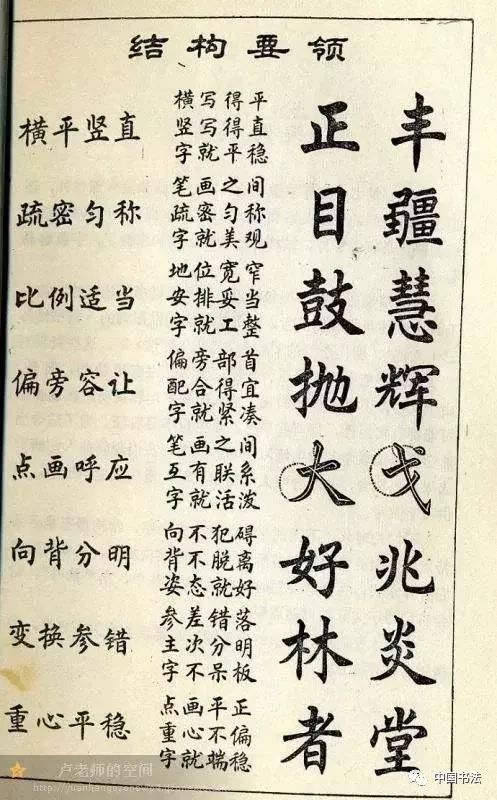 结构要领
横平竖直
横写得平
竖写得直
字就平稳
正 丰
疏密匀称
笔画之间
疏密匀称
字就美观
目 疆
比例适当
地位宽窄
安排妥当
字就工整
鼓 慧
偏旁容让
偏旁部首
配合得宜
字就紧凑
抛 辉
点画呼应
笔画之间
互有联系
字就活泼
大 戈
向背分明
向不犯碍
背不脱离
姿态就好
好 兆
变换参错
参差错落
主次分明
字不呆板
林 炎
重心平稳
点画平正
重心不偏
字就端稳
者 堂
卢老师的空间
中国书法